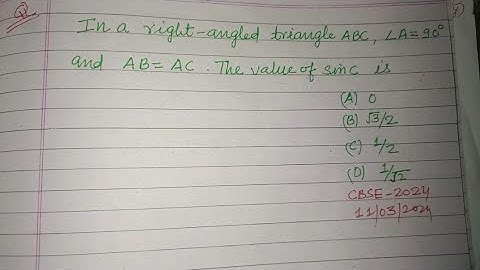 Q.
In a right-angled triangle ABC, ∠A=90°
and AB = AC. The value of sinC is
(A) 0
(B) √3/2
(C) 1/2
(D) 1/√2
CBSE-2024
11/03/2024